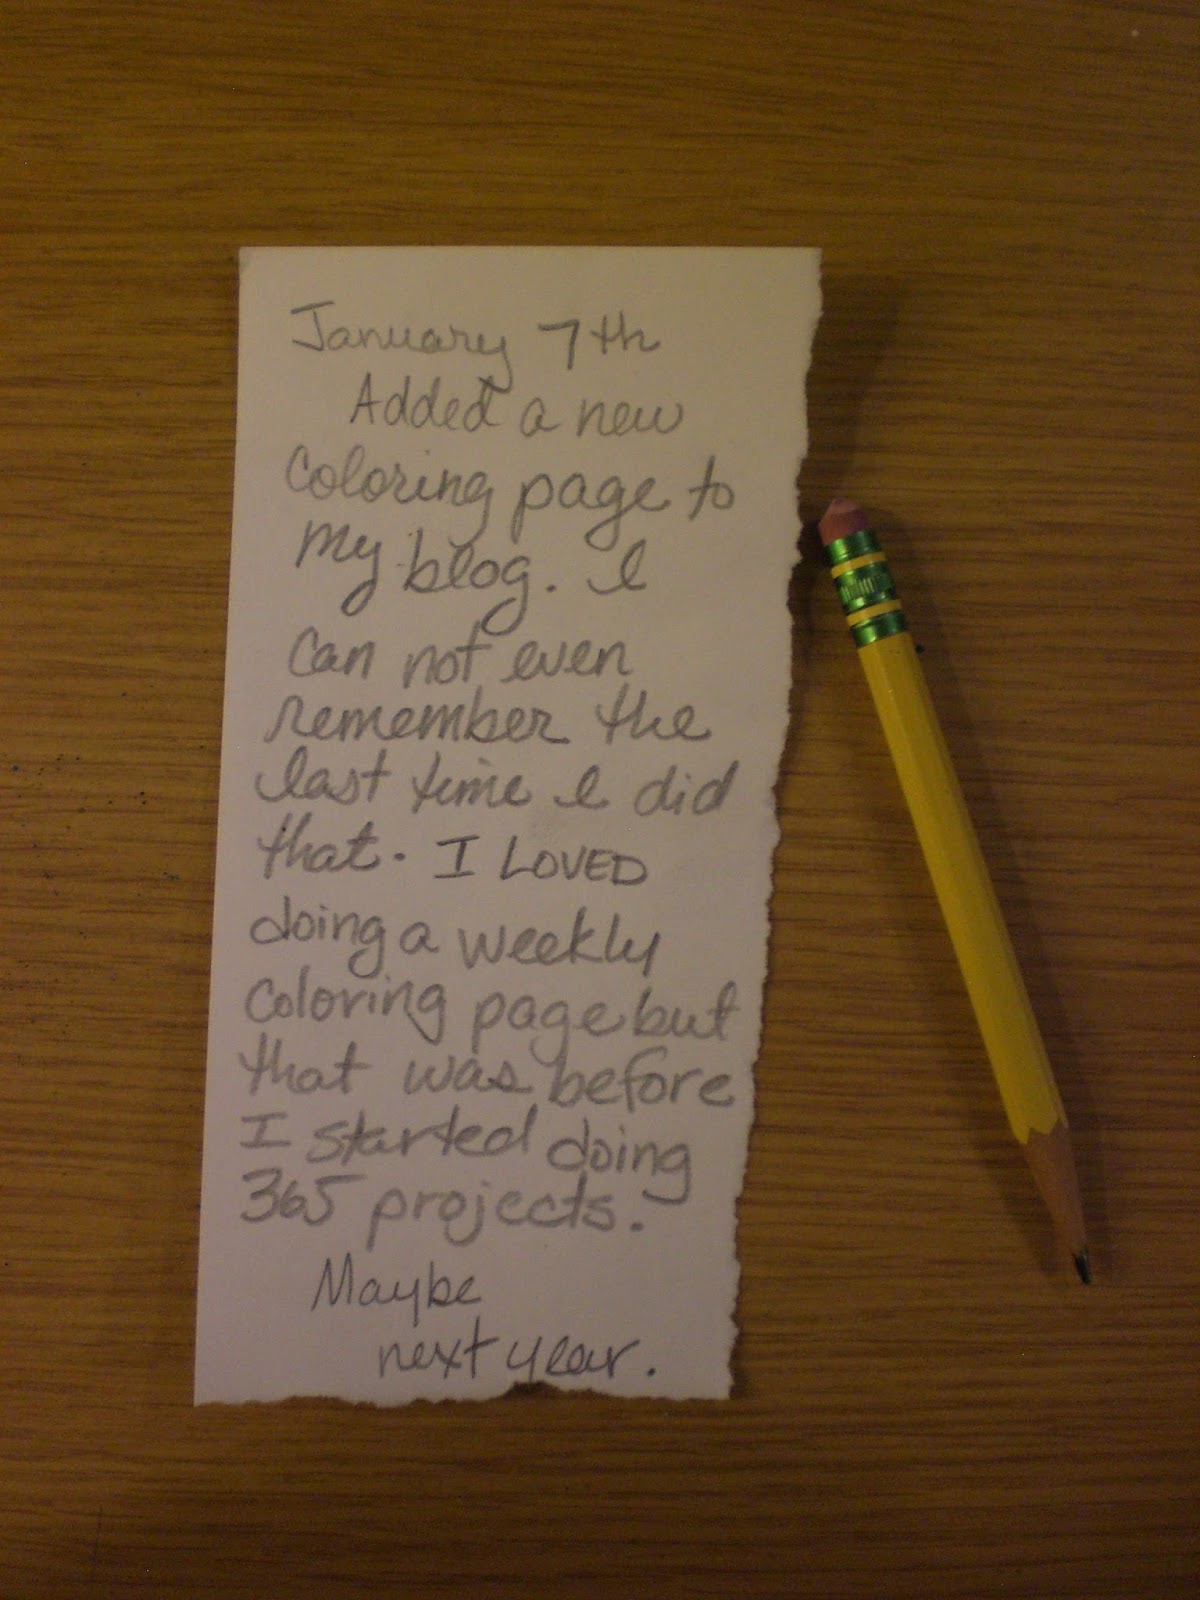 January 7th
Added a new
coloring page to
my blog. I
can not even
remember the
last time I did
that. I LOVED
doing a weekly
coloring page but
that was before
I started doing
365 projects.
Maybe
next year.